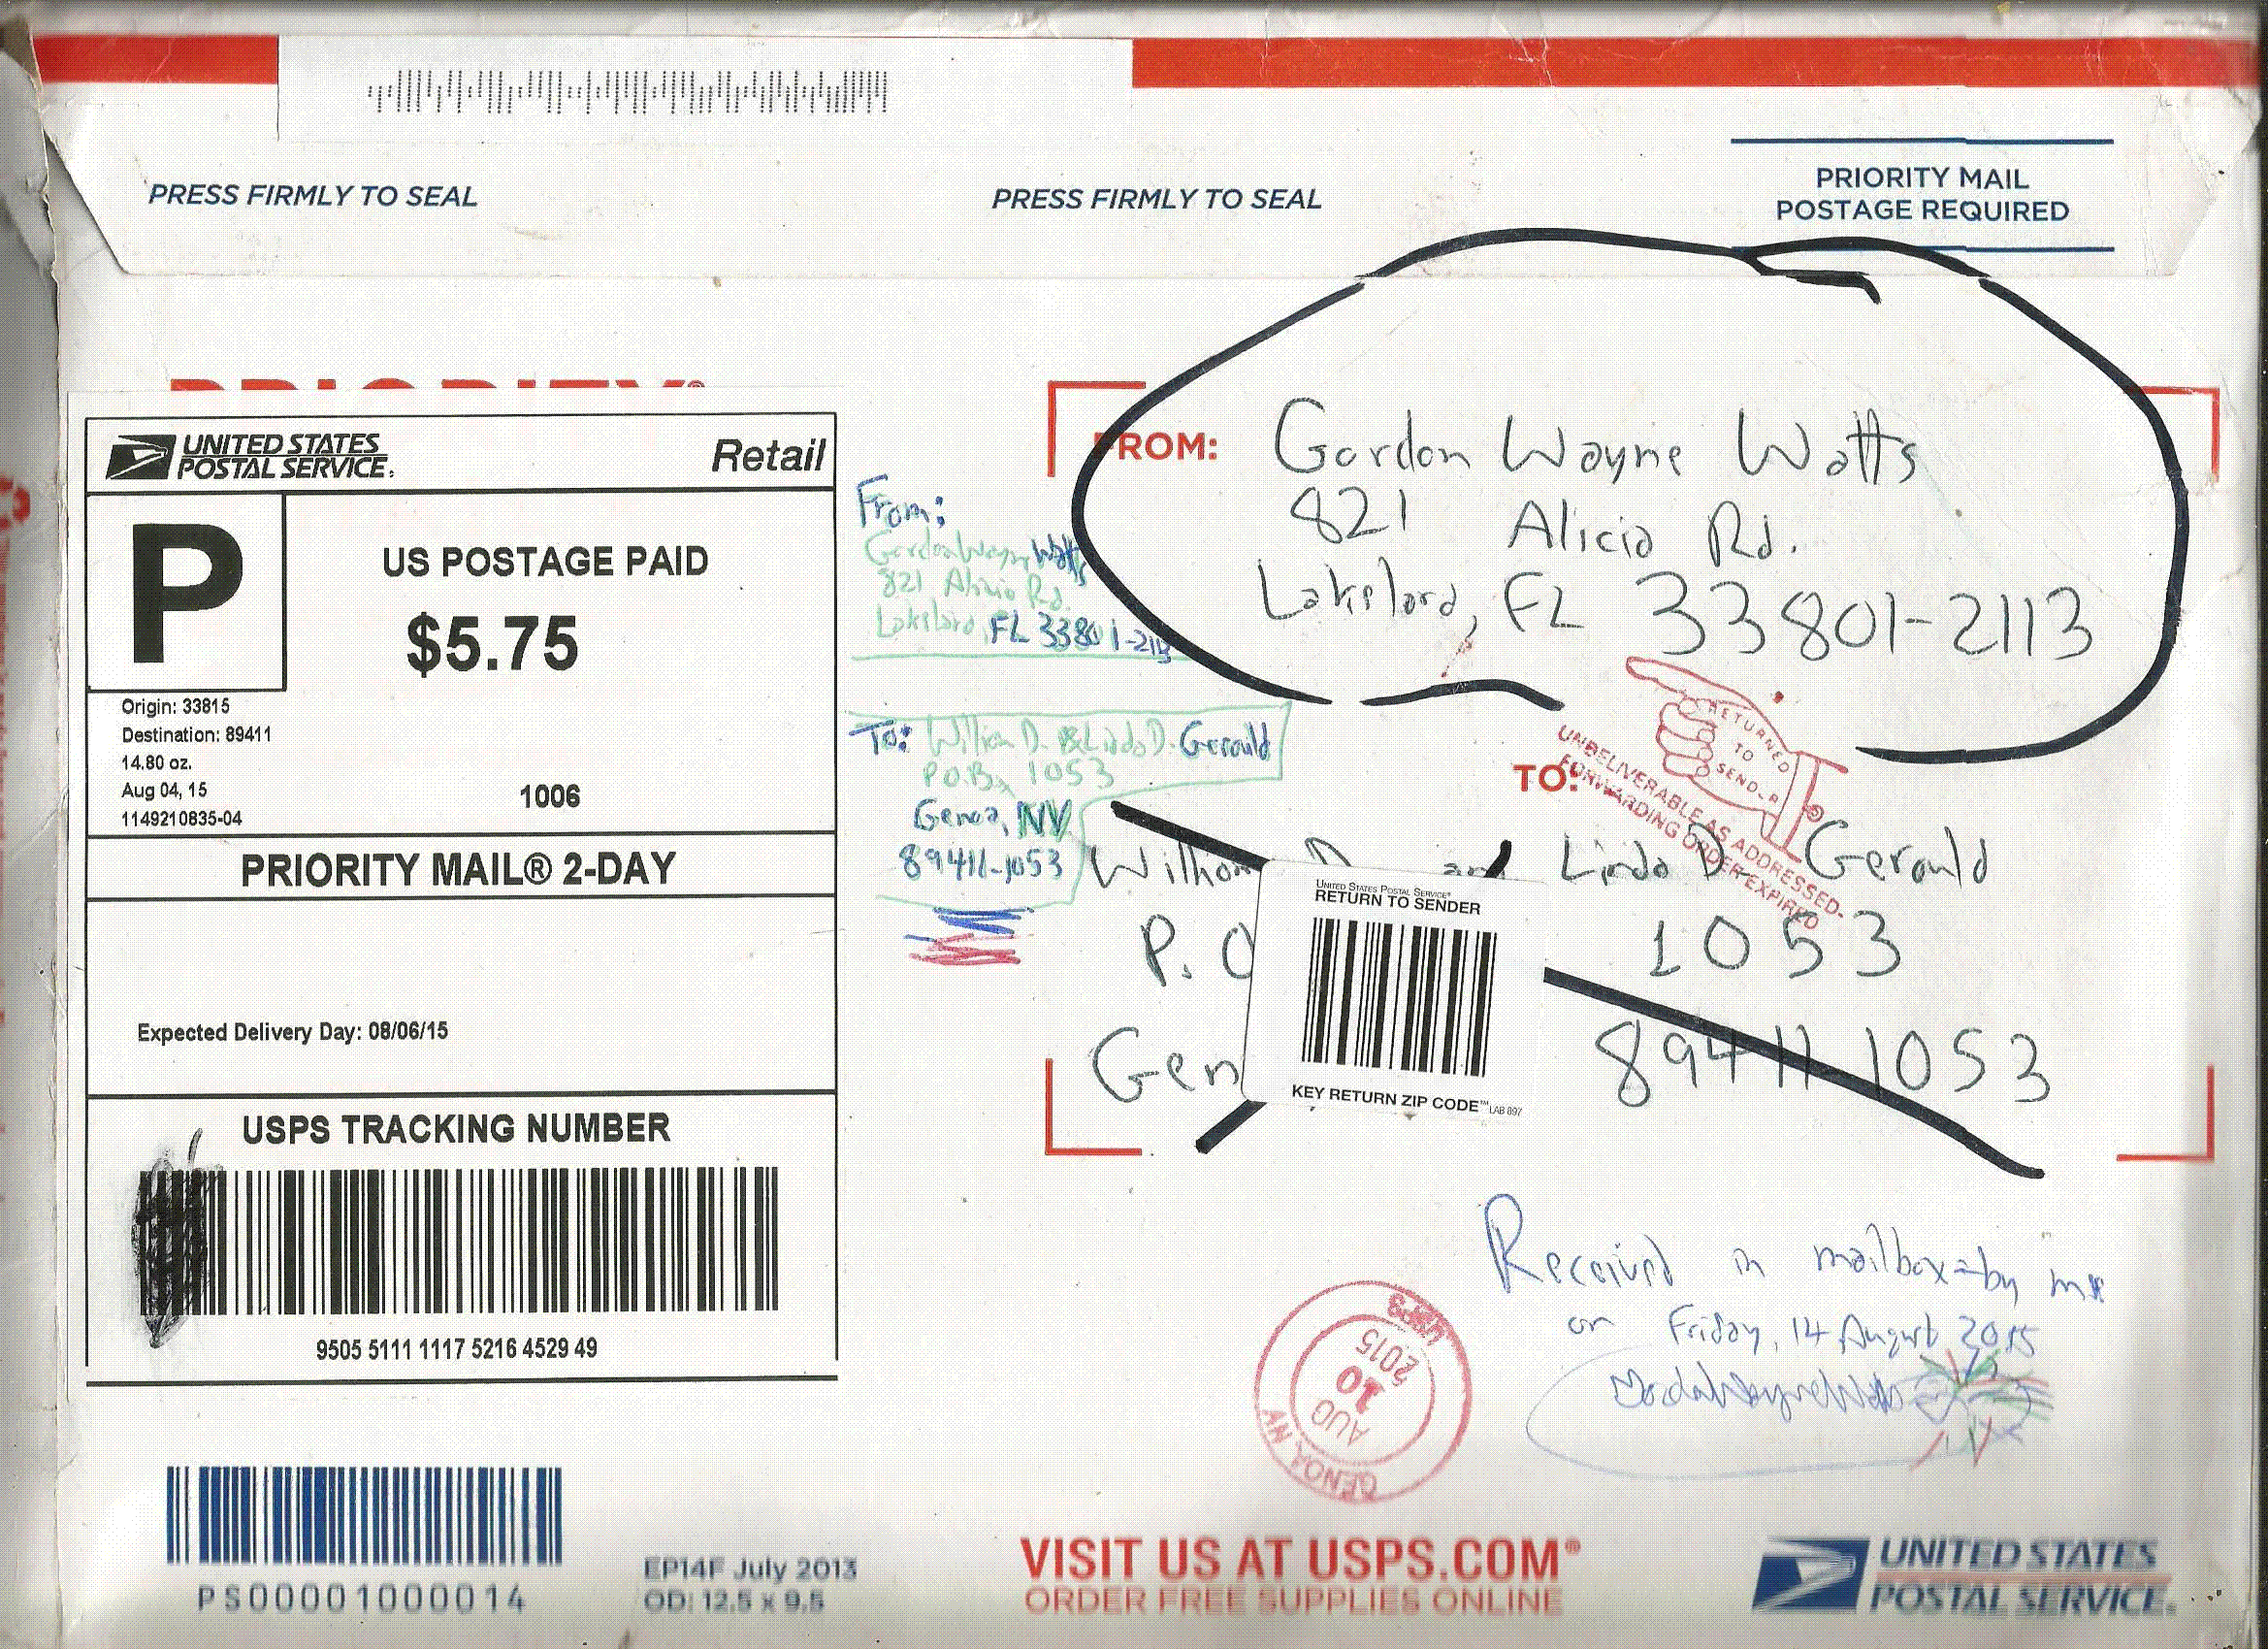 PRESS FIRMLY TO SEAL
PRESS FIRMLY TO SEAL
PRIORITY MAIL
POSTAGE REQUIRED
PRIORITY®
UNITED STATES
POSTAL SERVICE®
Retail
P
US POSTAGE PAID
$5.75
Origin: 33815
Destination: 89411
14.80 oz.
Aug 04, 15
1149210835-04
1006
PRIORITY MAIL® 2-DAY
Expected Delivery Day: 08/06/15
USPS TRACKING NUMBER
9505 5111 1117 5216 4529 49
From:
Gordon Wayne Watts
821 Alicia Rd.
Lakeland, FL 33801-2113
To: William D. & Linda D. Gerould
P.O. Box 1053
Genoa, NV
89411-1053
FROM: Gordon Wayne Watts
821 Alicia Rd.
Lakeland, FL 33801-2113
RETURNED
TO
SENDER
UNDELIVERABLE AS ADDRESSED-
FORWARDING ORDER EXPIRED
TO:
William D. and Linda D. Gerould
P. O 1053
Gen 89411-1053
UNITED STATES POSTAL SERVICE®
RETURN TO SENDER
KEY RETURN ZIP CODE™ LAB 897
Received in mailbox by me
on Friday, 14 August 2015
Gordon Wayne Watts
GENOA, NV
AUG
10
2015
USPS
PS00001000014
EP14F July 2013
OD: 12.5 x 9.5
VISIT US AT USPS.COM®
ORDER FREE SUPPLIES ONLINE
UNITED STATES
POSTAL SERVICE®